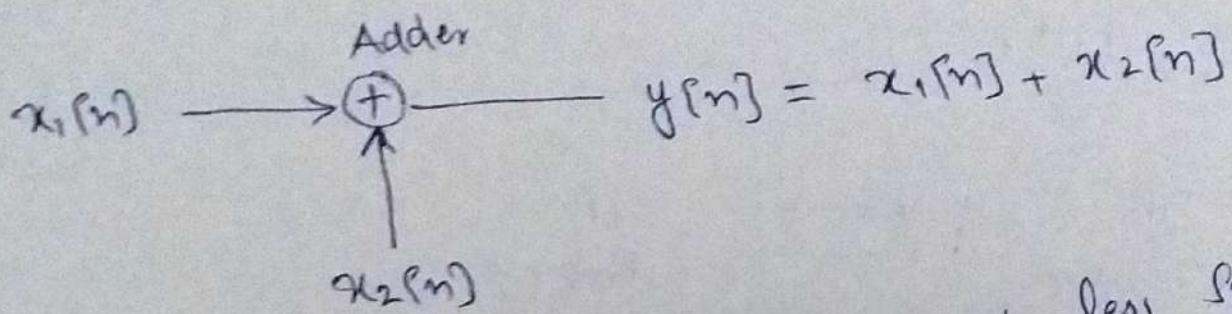 Adder
x₁[n] y[n] = x₁[n] + x₂[n]
+
x₂[n]